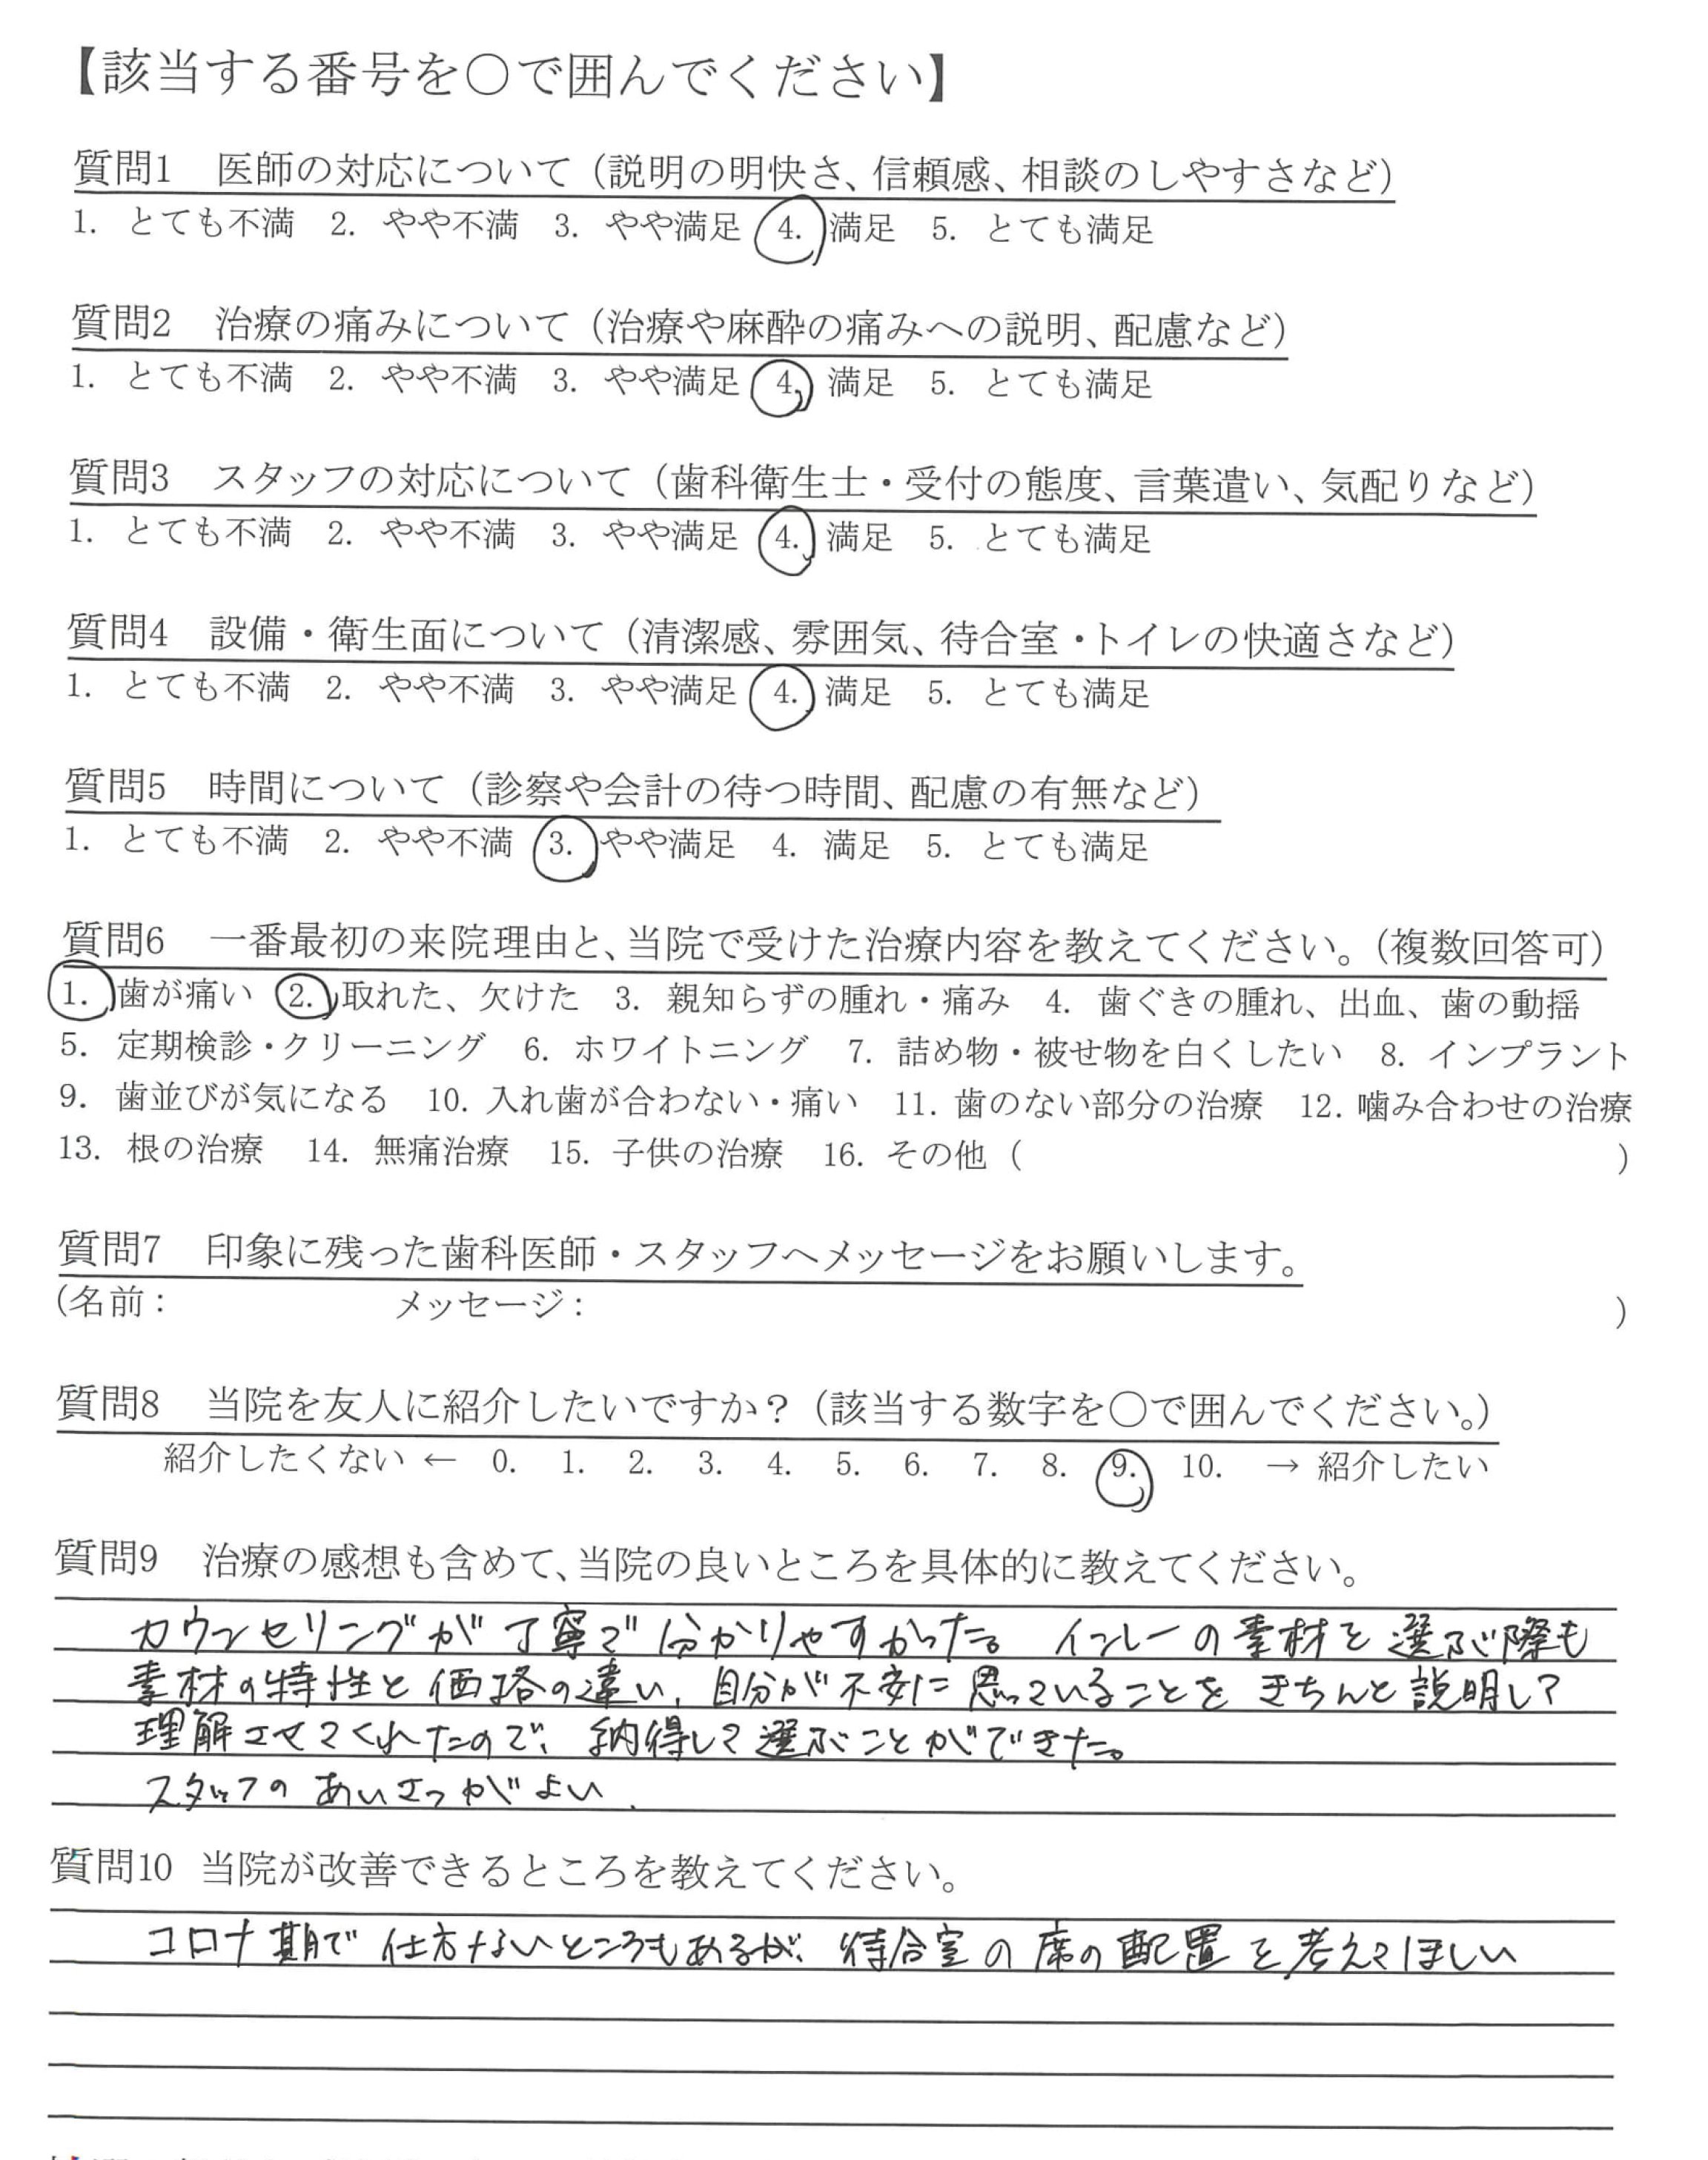 【該当する番号を○で囲んでください】
質問1 医師の対応について（説明の明快さ、信頼感、相談のしやすさなど）
1. とても不満 2. やや不満 3. やや満足 4. 満足 5. とても満足
質問2 治療の痛みについて（治療や麻酔の痛みへの説明、配慮など）
1. とても不満 2. やや不満 3. やや満足 4. 満足 5. とても満足
質問3 スタッフの対応について（歯科衛生士・受付の態度、言葉遣い、気配りなど）
1. とても不満 2. やや不満 3. やや満足 4. 満足 5. とても満足
質問4 設備・衛生面について（清潔感、雰囲気、待合室・トイレの快適さなど）
1. とても不満 2. やや不満 3. やや満足 4. 満足 5. とても満足
質問5 時間について（診察や会計の待つ時間、配慮の有無など）
1. とても不満 2. やや不満 3. やや満足 4. 満足 5. とても満足
質問6 一番最初の来院理由と、当院で受けた治療内容を教えてください。（複数回答可）
1. 歯が痛い 2. 取れた、欠けた 3. 親知らずの腫れ・痛み 4. 歯ぐきの腫れ、出血、歯の動揺
5. 定期検診・クリーニング 6. ホワイトニング 7. 詰め物・被せ物を白くしたい 8. インプラント
9. 歯並びが気になる 10. 入れ歯が合わない・痛い 11. 歯のない部分の治療 12. 噛み合わせの治療
13. 根の治療 14. 無痛治療 15. 子供の治療 16. その他（ ）
質問7 印象に残った歯科医師・スタッフへメッセージをお願いします。
（名前： メッセージ： ）
質問8 当院を友人に紹介したいですか？（該当する数字を○で囲んでください。）
紹介したくない ← 0. 1. 2. 3. 4. 5. 6. 7. 8. 9. 10. → 紹介したい
質問9 治療の感想も含めて、当院の良いところを具体的に教えてください。
カウンセリングが丁寧で分かりやすかった。 インレーの素材を選ぶ際も
素材の特性と価格の違い、自分が不安に思っていることをきちんと説明して
理解させてくれたので、納得して選ぶことができた。
スタッフのあいさつがよい、
質問10 当院が改善できるところを教えてください。
コロナ期で仕方ないところもあるが、待合室の席の配置を考えてほしい